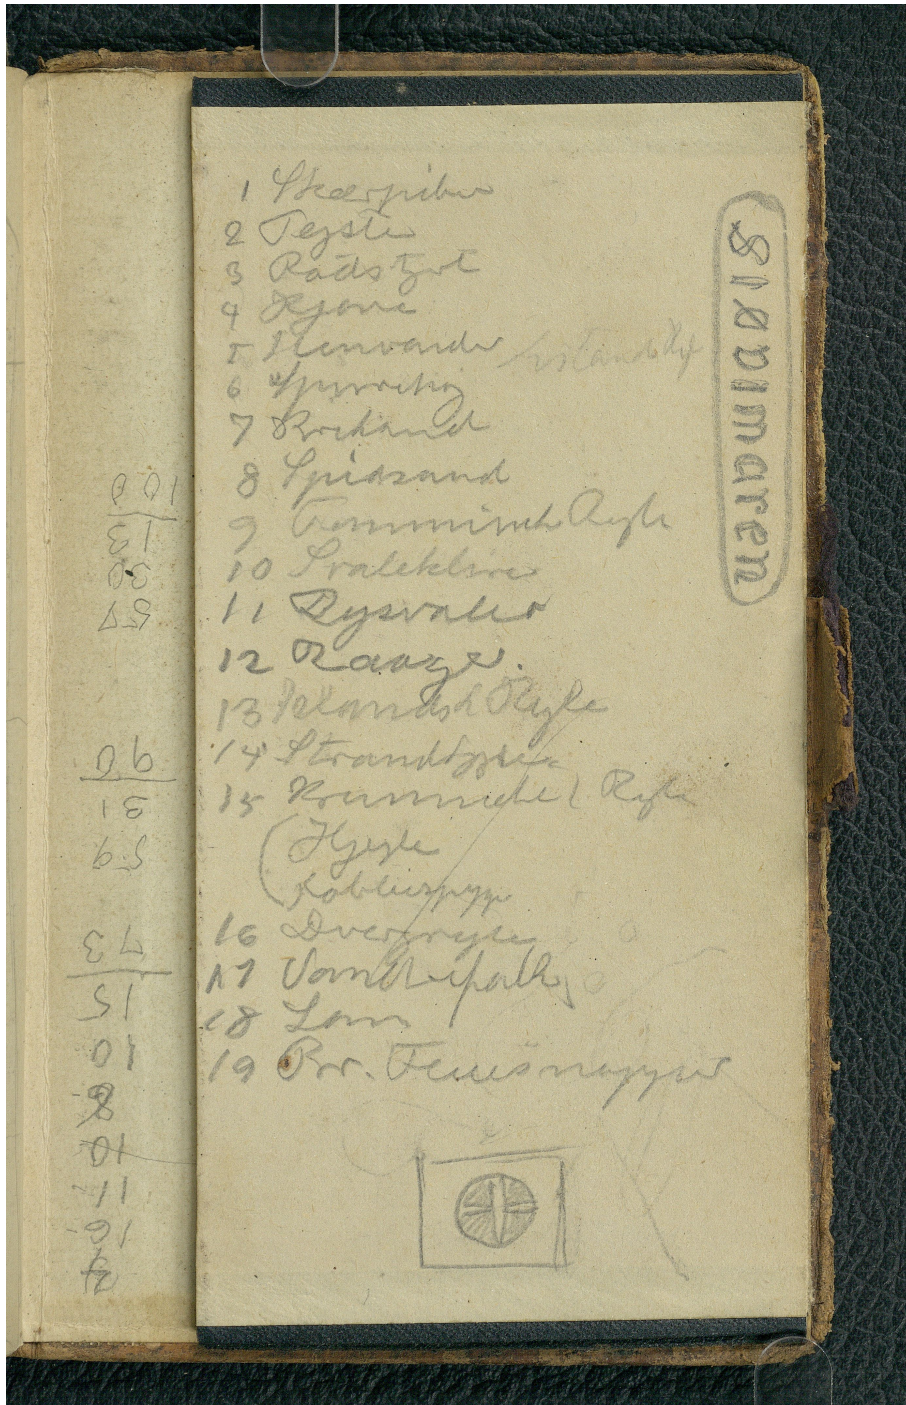 1 Skærpiber
2 Tejste
3 Rødstjert
4 Kjove
5 Stenvender
6 Spurvehøg
7 Krikand
8 Spidsand
9 Temminck Ryle
10 Svaleklire
11 Dysvaler
12 Raage.
13 Islandsk Ryle
14 Strand
15 Krumnæbet Ryle
(Hjejle
Kobbersneppe
16 Dværgryle
17 Vandrefalk
18 Lom
19 Br. Fluesnapper
100
13
30
57
90
31
59
73
15
10
8
10
11
16